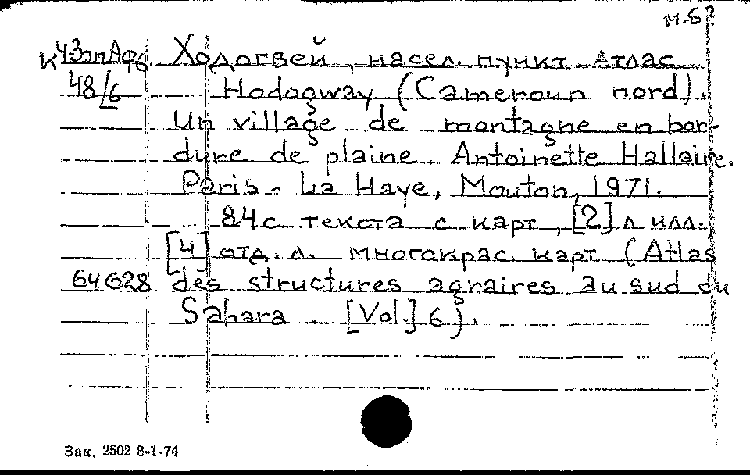 м.б?
К 43апАф6 Ходогвей, насел. пункт. Атлас
48/6 Hodogway (Cameroun nord).
Un village de montagne en bor-
dure de plaine. Antoinette Hallaire.
Paris - La Haye, Mouton, 1971.
84 с текста с карт, [2] л илл.
[4] отд. л. многокрас. карт (Atlas
64628 des structures agraires au sud du
Sahara. [Vol.] 6).
Зак. 2502 8-1-74